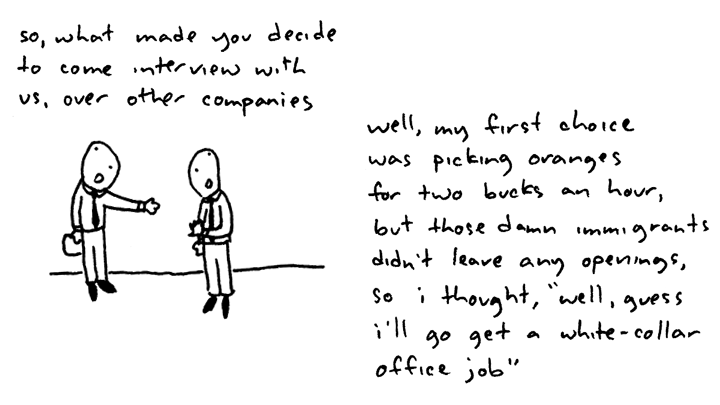 so, what made you decide
to come interview with
us, over other companies
well, my first choice
was picking oranges
for two bucks an hour,
but those damn immigrants
didn't leave any openings,
so i thought, "well, guess
i'll go get a white-collar
office job"